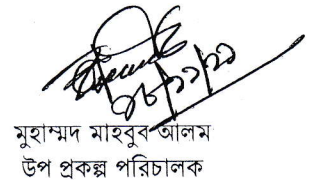 ২৮/১১/২১
মুহাম্মদ মাহবুব আলম
উপ প্রকল্প পরিচালক